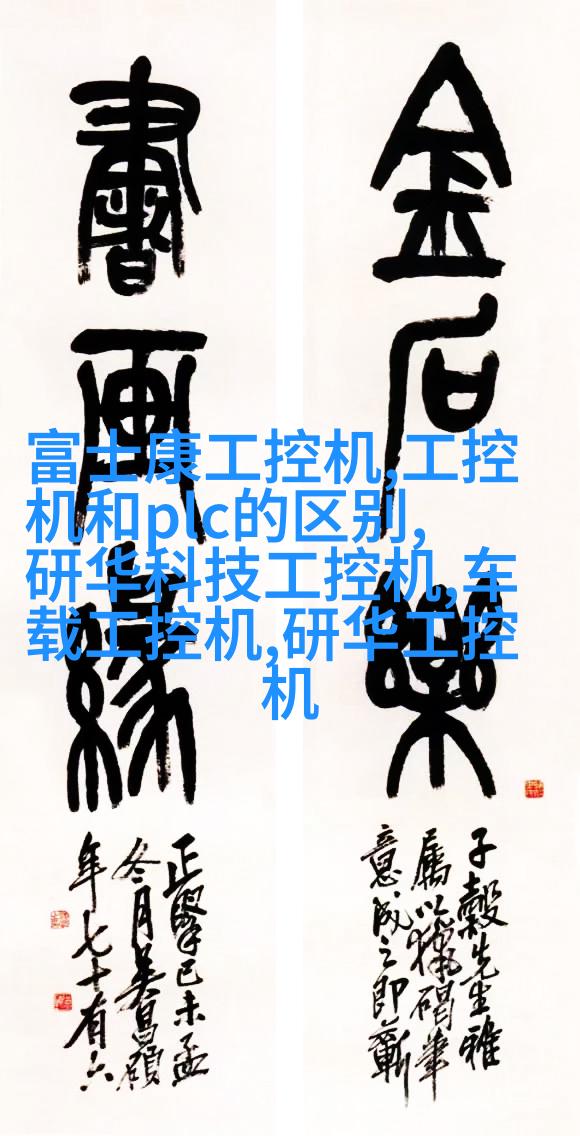 金石樂
子穀先生雅
屬以獵碣筆
意成之即蘄
書畫緣
正 己未孟
冬月吳昌碩
年七十有六
富士康工控机,工控
机和plc的区别,
研华科技工控机,车
载工控机,研华工控
机